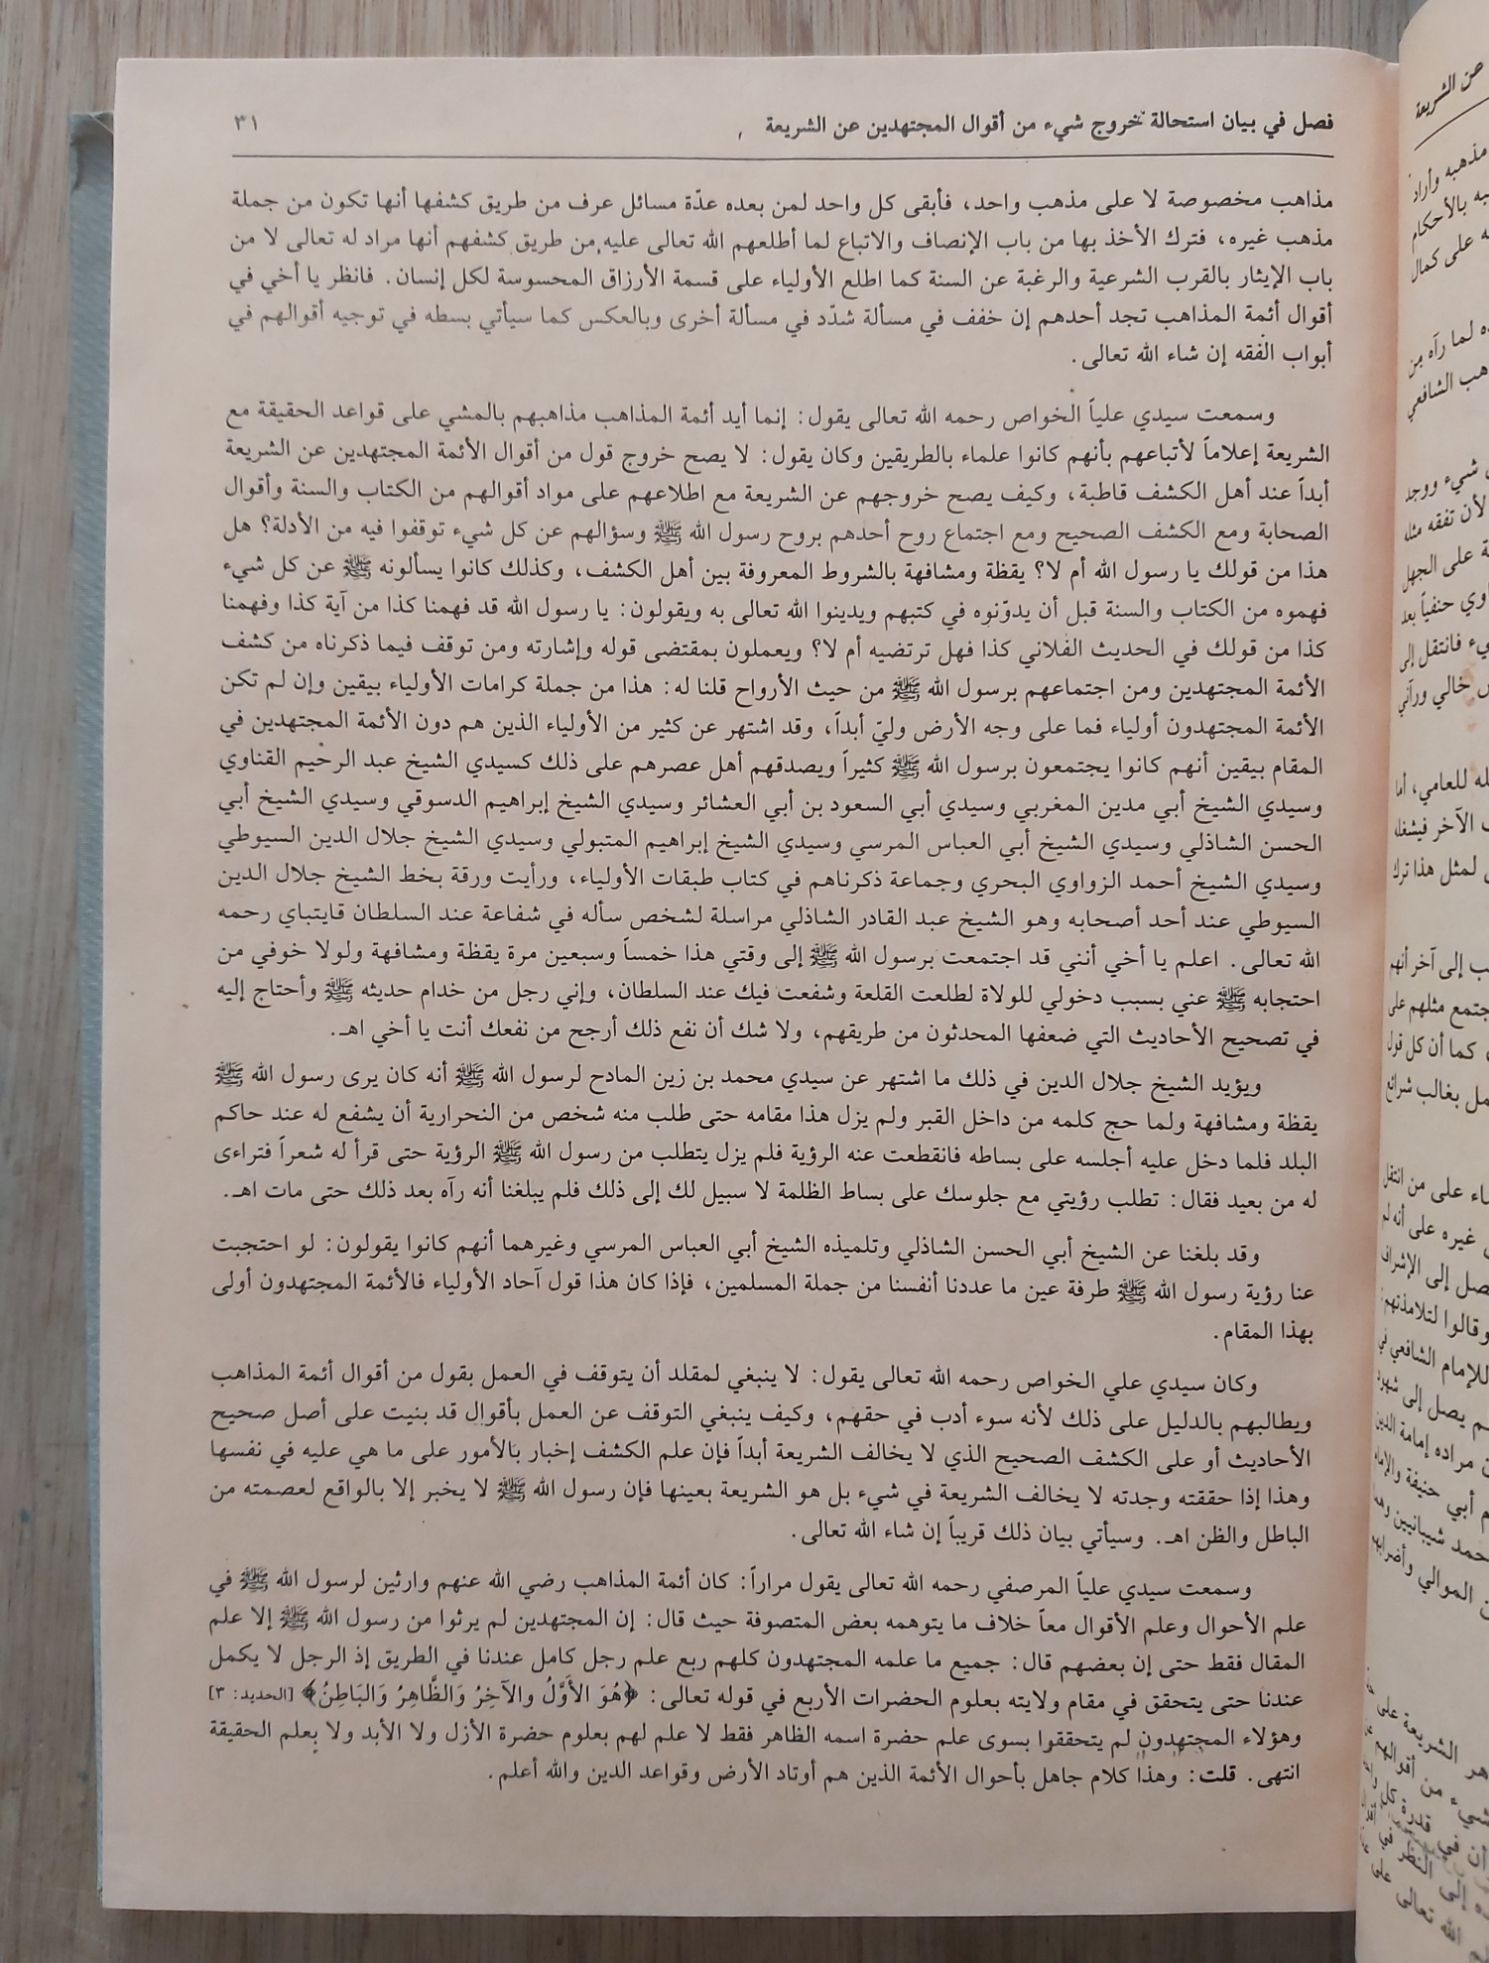 فصل في بيان استحالة خروج شيء من أقوال المجتهدين عن الشريعة ٣١
مذاهب مخصوصة لا على مذهب واحد، فأبقى كل واحد لمن بعده عدّة مسائل عرف من طريق كشفها أنها تكون من جملة
مذهب غيره، فترك الأخذ بها من باب الإنصاف والاتباع لما أطلعهم الله تعالى عليه من طريق كشفهم أنها مراد له تعالى لا من
باب الإيثار بالقرب الشرعية والرغبة عن السنة كما اطلع الأولياء على قسمة الأرزاق المحسوسة لكل إنسان. فانظر يا أخي في
أقوال أئمة المذاهب تجد أحدهم إن خفف في مسألة شدّد في مسألة أخرى وبالعكس كما سيأتي بسطه في توجيه أقوالهم في
أبواب الفقه إن شاء الله تعالى.
وسمعت سيدي علياً الخواص رحمه الله تعالى يقول: إنما أيد أئمة المذاهب مذاهبهم بالمشي على قواعد الحقيقة مع
الشريعة إعلاماً لأتباعهم بأنهم كانوا علماء بالطريقين وكان يقول: لا يصح خروج قول من أقوال الأئمة المجتهدين عن الشريعة
أبداً عند أهل الكشف قاطبة، وكيف يصح خروجهم عن الشريعة مع اطلاعهم على مواد أقوالهم من الكتاب والسنة وأقوال
الصحابة ومع الكشف الصحيح ومع اجتماع روح أحدهم بروح رسول الله ﷺ وسؤالهم عن كل شيء توقفوا فيه من الأدلة؟ هل
هذا من قولك يا رسول الله أم لا؟ يقظة ومشافهة بالشروط المعروفة بين أهل الكشف، وكذلك كانوا يسألونه ﷺ عن كل شيء
فهموه من الكتاب والسنة قبل أن يدوّنوه في كتبهم ويدينوا الله تعالى به ويقولون: يا رسول الله قد فهمنا كذا من آية كذا وفهمنا
كذا من قولك في الحديث الفلاني كذا فهل ترتضيه أم لا؟ ويعملون بمقتضى قوله وإشارته ومن توقف فيما ذكرناه من كشف
الأئمة المجتهدين ومن اجتماعهم برسول الله ﷺ من حيث الأرواح قلنا له: هذا من جملة كرامات الأولياء بيقين وإن لم تكن
الأئمة المجتهدون أولياء فما على وجه الأرض وليّ أبداً، وقد اشتهر عن كثير من الأولياء الذين هم دون الأئمة المجتهدين في
المقام بيقين أنهم كانوا يجتمعون برسول الله ﷺ كثيراً ويصدقهم أهل عصرهم على ذلك كسيدي الشيخ عبد الرحيم القناوي
وسيدي الشيخ أبي مدين المغربي وسيدي أبي السعود بن أبي العشائر وسيدي الشيخ إبراهيم الدسوقي وسيدي الشيخ أبي
الحسن الشاذلي وسيدي الشيخ أبي العباس المرسي وسيدي الشيخ إبراهيم المتبولي وسيدي الشيخ جلال الدين السيوطي
وسيدي الشيخ أحمد الزواوي البحري وجماعة ذكرناهم في كتاب طبقات الأولياء، ورأيت ورقة بخط الشيخ جلال الدين
السيوطي عند أحد أصحابه وهو الشيخ عبد القادر الشاذلي مراسلة لشخص سأله في شفاعة عند السلطان قايتباي رحمه
الله تعالى. اعلم يا أخي أنني قد اجتمعت برسول الله ﷺ إلى وقتي هذا خمساً وسبعين مرة يقظة ومشافهة ولولا خوفي من
احتجابه ﷺ عني بسبب دخولي للولاة لطلعت القلعة وشفعت فيك عند السلطان، وإني رجل من خدام حديثه ﷺ وأحتاج إليه
في تصحيح الأحاديث التي ضعفها المحدثون من طريقهم، ولا شك أن نفع ذلك أرجح من نفعك أنت يا أخي اهـ.
ويؤيد الشيخ جلال الدين في ذلك ما اشتهر عن سيدي محمد بن زين المادح لرسول الله ﷺ أنه كان يرى رسول الله ﷺ
يقظة ومشافهة ولما حج كلمه من داخل القبر ولم يزل هذا مقامه حتى طلب منه شخص من النحرارية أن يشفع له عند حاكم
البلد فلما دخل عليه أجلسه على بساطه فانقطعت عنه الرؤية فلم يزل يتطلب من رسول الله ﷺ الرؤية حتى قرأ له شعراً فتراءى
له من بعيد فقال: تطلب رؤيتي مع جلوسك على بساط الظلمة لا سبيل لك إلى ذلك فلم يبلغنا أنه رآه بعد ذلك حتى مات اهـ.
وقد بلغنا عن الشيخ أبي الحسن الشاذلي وتلميذه الشيخ أبي العباس المرسي وغيرهما أنهم كانوا يقولون: لو احتجبت
عنا رؤية رسول الله ﷺ طرفة عين ما عددنا أنفسنا من جملة المسلمين، فإذا كان هذا قول آحاد الأولياء فالأئمة المجتهدون أولى
بهذا المقام.
وكان سيدي علي الخواص رحمه الله تعالى يقول: لا ينبغي لمقلد أن يتوقف في العمل بقول من أقوال أئمة المذاهب
ويطالبهم بالدليل على ذلك لأنه سوء أدب في حقهم، وكيف ينبغي التوقف عن العمل بأقوال قد بنيت على أصل صحيح
الأحاديث أو على الكشف الصحيح الذي لا يخالف الشريعة أبداً فإن علم الكشف إخبار بالأمور على ما هي عليه في نفسها
وهذا إذا حققته وجدته لا يخالف الشريعة في شيء بل هو الشريعة بعينها فإن رسول الله ﷺ لا يخبر إلا بالواقع لعصمته من
الباطل والظن اهـ. وسيأتي بيان ذلك قريباً إن شاء الله تعالى.
وسمعت سيدي علياً المرصفي رحمه الله تعالى يقول مراراً: كان أئمة المذاهب رضي الله عنهم وارثين لرسول الله ﷺ في
علم الأحوال وعلم الأقوال معاً خلاف ما يتوهمه بعض المتصوفة حيث قال: إن المجتهدين لم يرثوا من رسول الله ﷺ إلا علم
المقال فقط حتى إن بعضهم قال: جميع ما علمه المجتهدون كلهم ربع علم رجل كامل عندنا في الطريق إذ الرجل لا يكمل
عندنا حتى يتحقق في مقام ولايته بعلوم الحضرات الأربع في قوله تعالى: ﴿هُوَ الأَوَّلُ والآخِرُ وَالظَّاهِرُ وَالبَاطِنُ﴾ [الحديد: ٣]
وهؤلاء المجتهدون لم يتحققوا بسوى علم حضرة اسمه الظاهر فقط لا علم لهم بعلوم حضرة الأزل ولا الأبد ولا بعلم الحقيقة
انتهى. قلت: وهذا كلام جاهل بأحوال الأئمة الذين هم أوتاد الأرض وقواعد الدين والله أعلم.
عن الشريعة
مذهبه وأراد
به بالأحكام
على كمال
لما رآه من
هب الشافعي
شيء ووجد
لأن تفقه مثله
على الجهل
وي حنفياً بعد
يء فانتقل إلى
خالي ورآني
له للعامي، أما
الآخر فيشغله
لمثل هذا ترك
ب إلى آخر أنهم
جتمع مثلهم على
كما أن كل قول
مل بغالب شرائع
اء على من انتقل
غيره على أنه لم
صل إلى الإشراف
وقالوا لتلامذتهم
للإمام الشافعي في
م يصل إلى شهود
مراده إمامة الدين
م أبي حنيفة والإمام
حمد شيبانيين
الموالي وأضرابهم